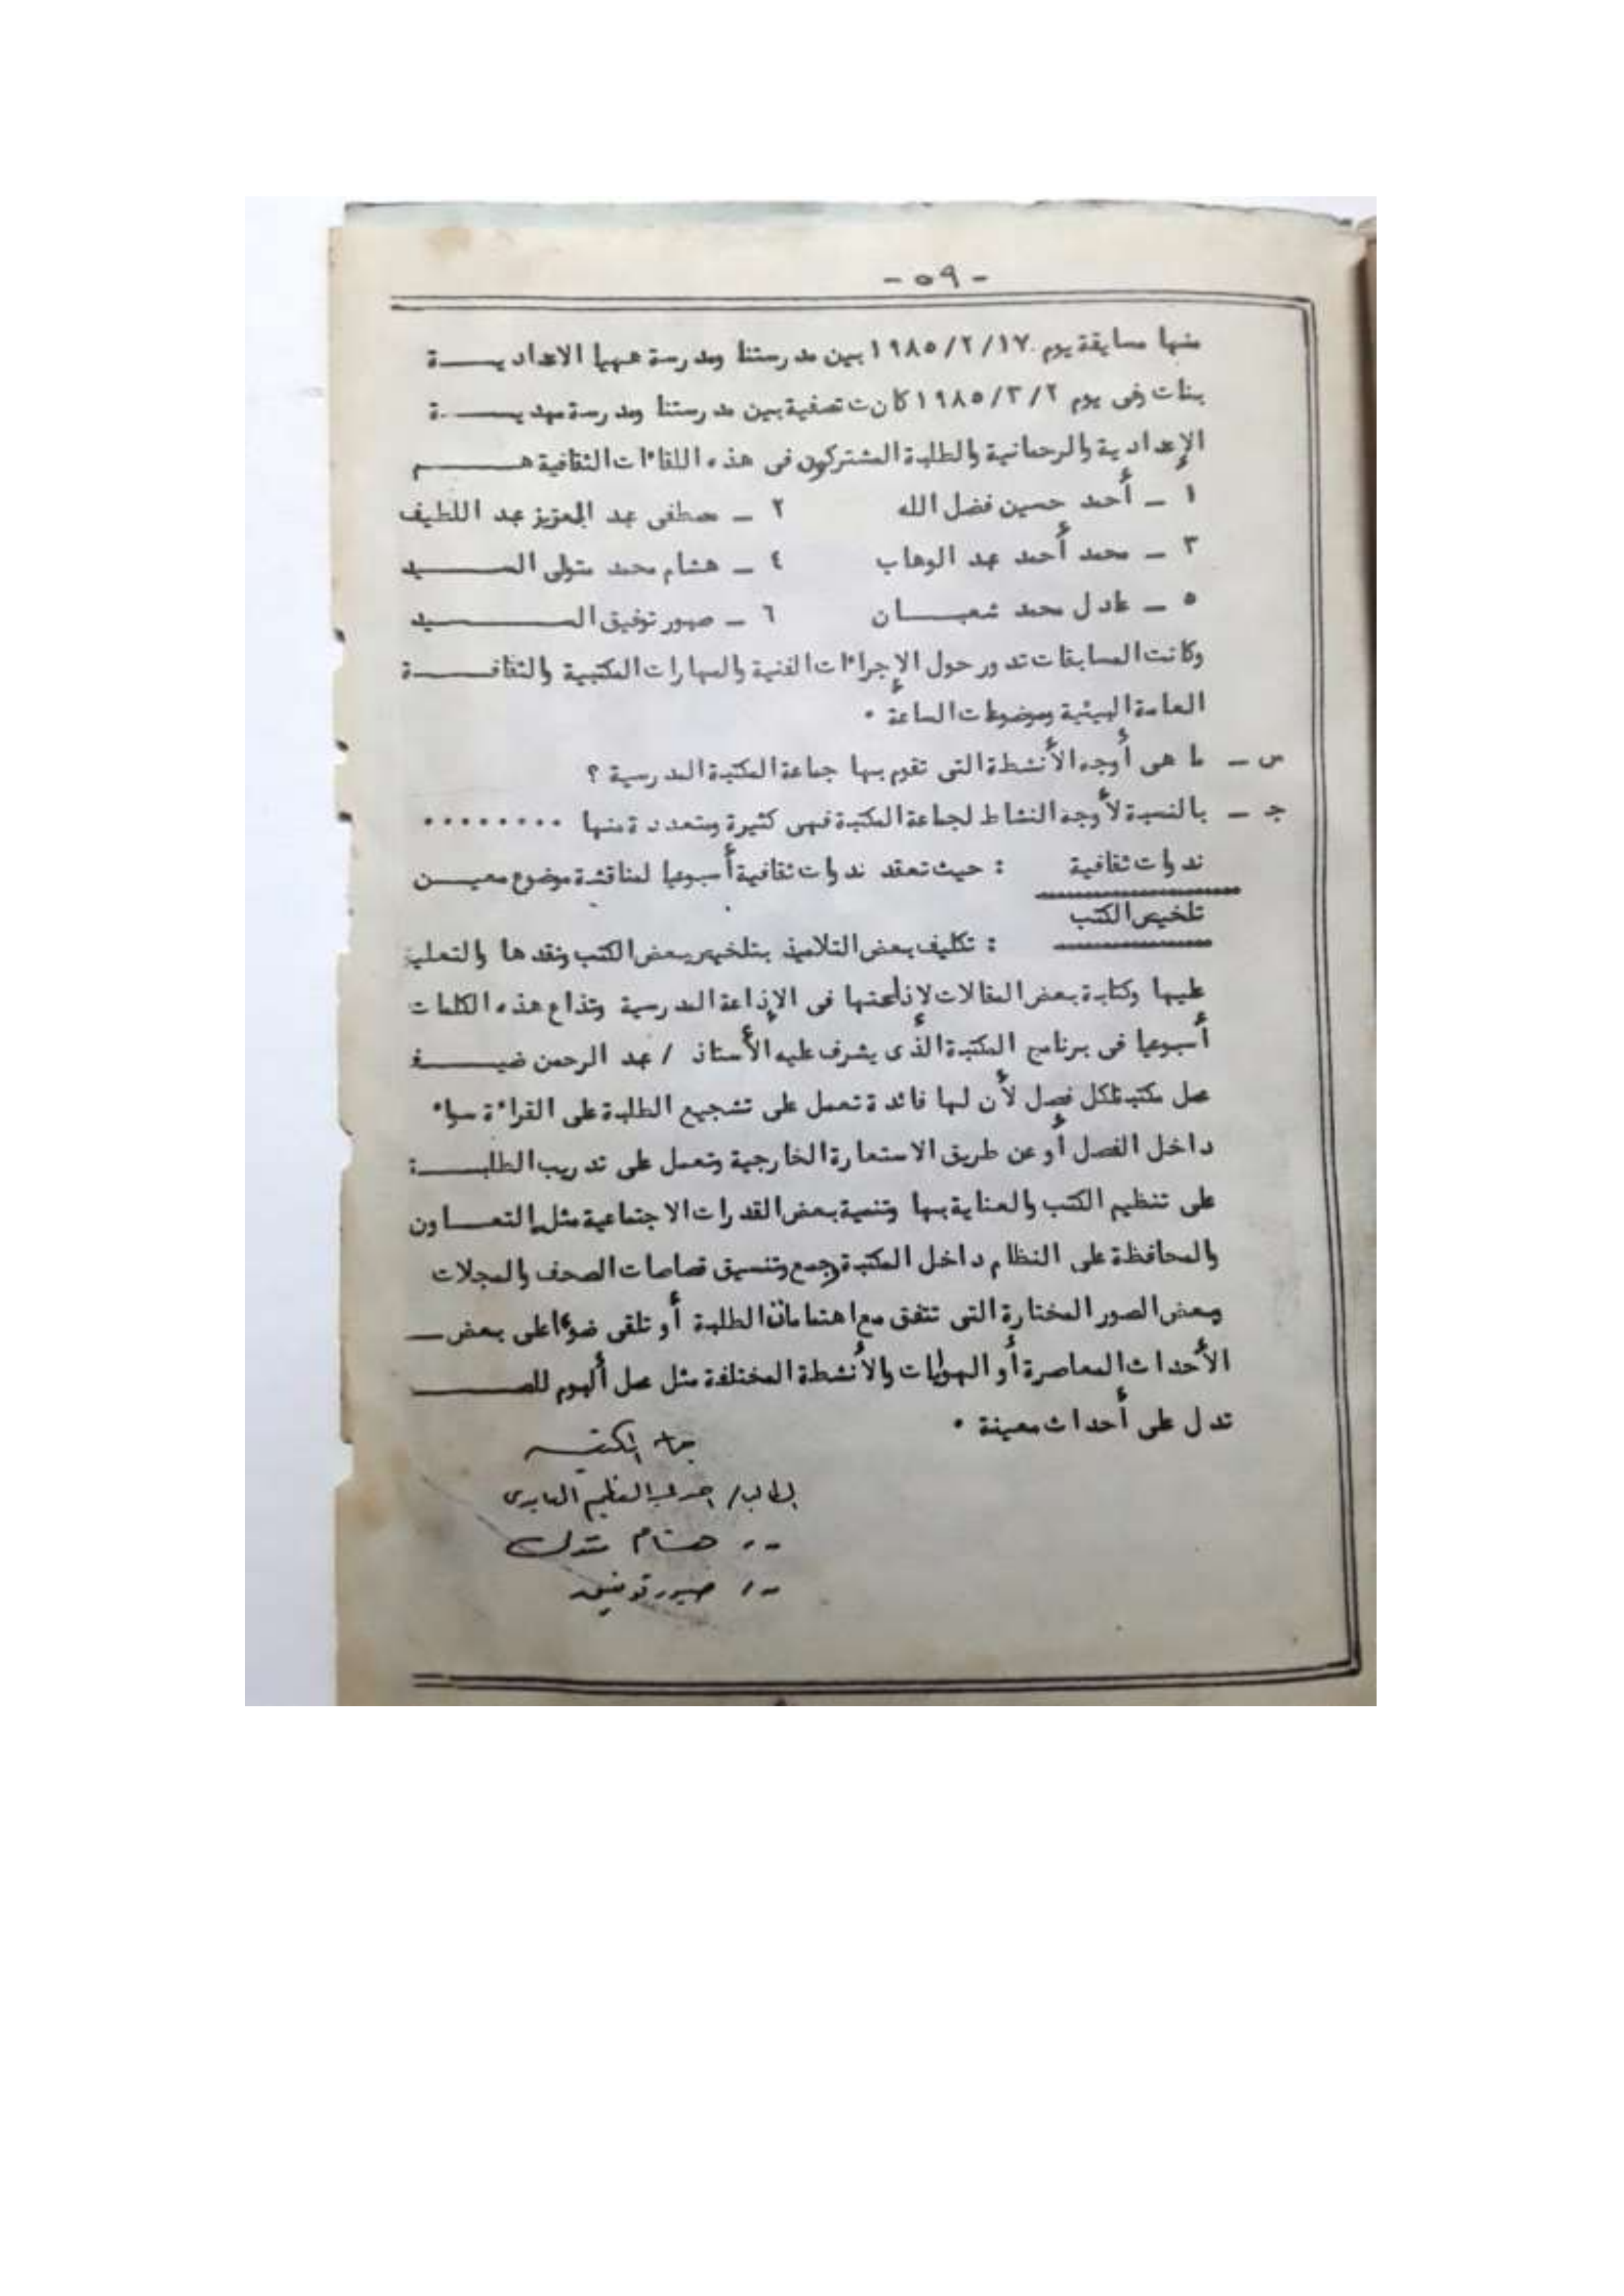 - ٥٩ -
منها مسابقة يوم ١٩٨٥/٢/١٧ بين مدرستنا ومدرسة ههيا الاعدادية
بنات وفى يوم ١٩٨٥/٣/٢ كانت تصفية بين مدرستنا ومدرسة مهدية
الإعدادية والرحمانية والطلبة المشتركون فى هذه اللقاءات الثقافية هم
١ – أحمد حسين فضل الله ٢ – مصطفى عبد العزيز عبد اللطيف
٣ – محمد أحمد عبد الوهاب ٤ – هشام محمد متولى السيد
٥ – عادل محمد شعبان ٦ – صبور توفيق السيد
وكانت المسابقات تدور حول الإجراءات الفنية والمهارات المكتبية والثقافة
العامة البيئية وموضوعات الساعة .
س – ما هى أوجه الأنشطة التى تقوم بها جماعة المكتبة المدرسية ؟
جـ – بالنسبة لأوجه النشاط لجماعة المكتبة فهى كثيرة ومتعددة منها ........
ندوات ثقافية : حيث تعقد ندوات ثقافية أسبوعيا لمناقشة موضوع معين
تلخيص الكتب
: تكليف بعض التلاميذ بتلخيص بعض الكتب ونقدها والتعليق
عليها وكتابة بعض المقالات لإذاعتها فى الإذاعة المدرسية وتذاع هذه الكلمات
أسبوعيا فى برنامج المكتبة الذى يشرف عليه الأستاذ / عبد الرحمن ضيف
عمل مكتبة لكل فصل لأن لها فائدة تعمل على تشجيع الطلبة على القراءة سواء
داخل الفصل أو عن طريق الاستعارة الخارجية وتعمل على تدريب الطلبة
على تنظيم الكتب والعناية بها وتنمية بعض القدرات الاجتماعية مثل التعاون
والمحافظة على النظام داخل المكتبة وجمع وتنسيق قصاصات الصحف والمجلات
وبعض الصور المختارة التى تتفق مع اهتمامات الطلبة أو تلقى ضوءا على بعض
الأحداث المعاصرة أو الهوايات والأنشطة المختلفة مثل عمل ألبوم
تدل على أحداث معينة .
المكتبة
الطالب / عبد العظيم
٠٠ هشام متولى
٠٠ / صبور توفيق